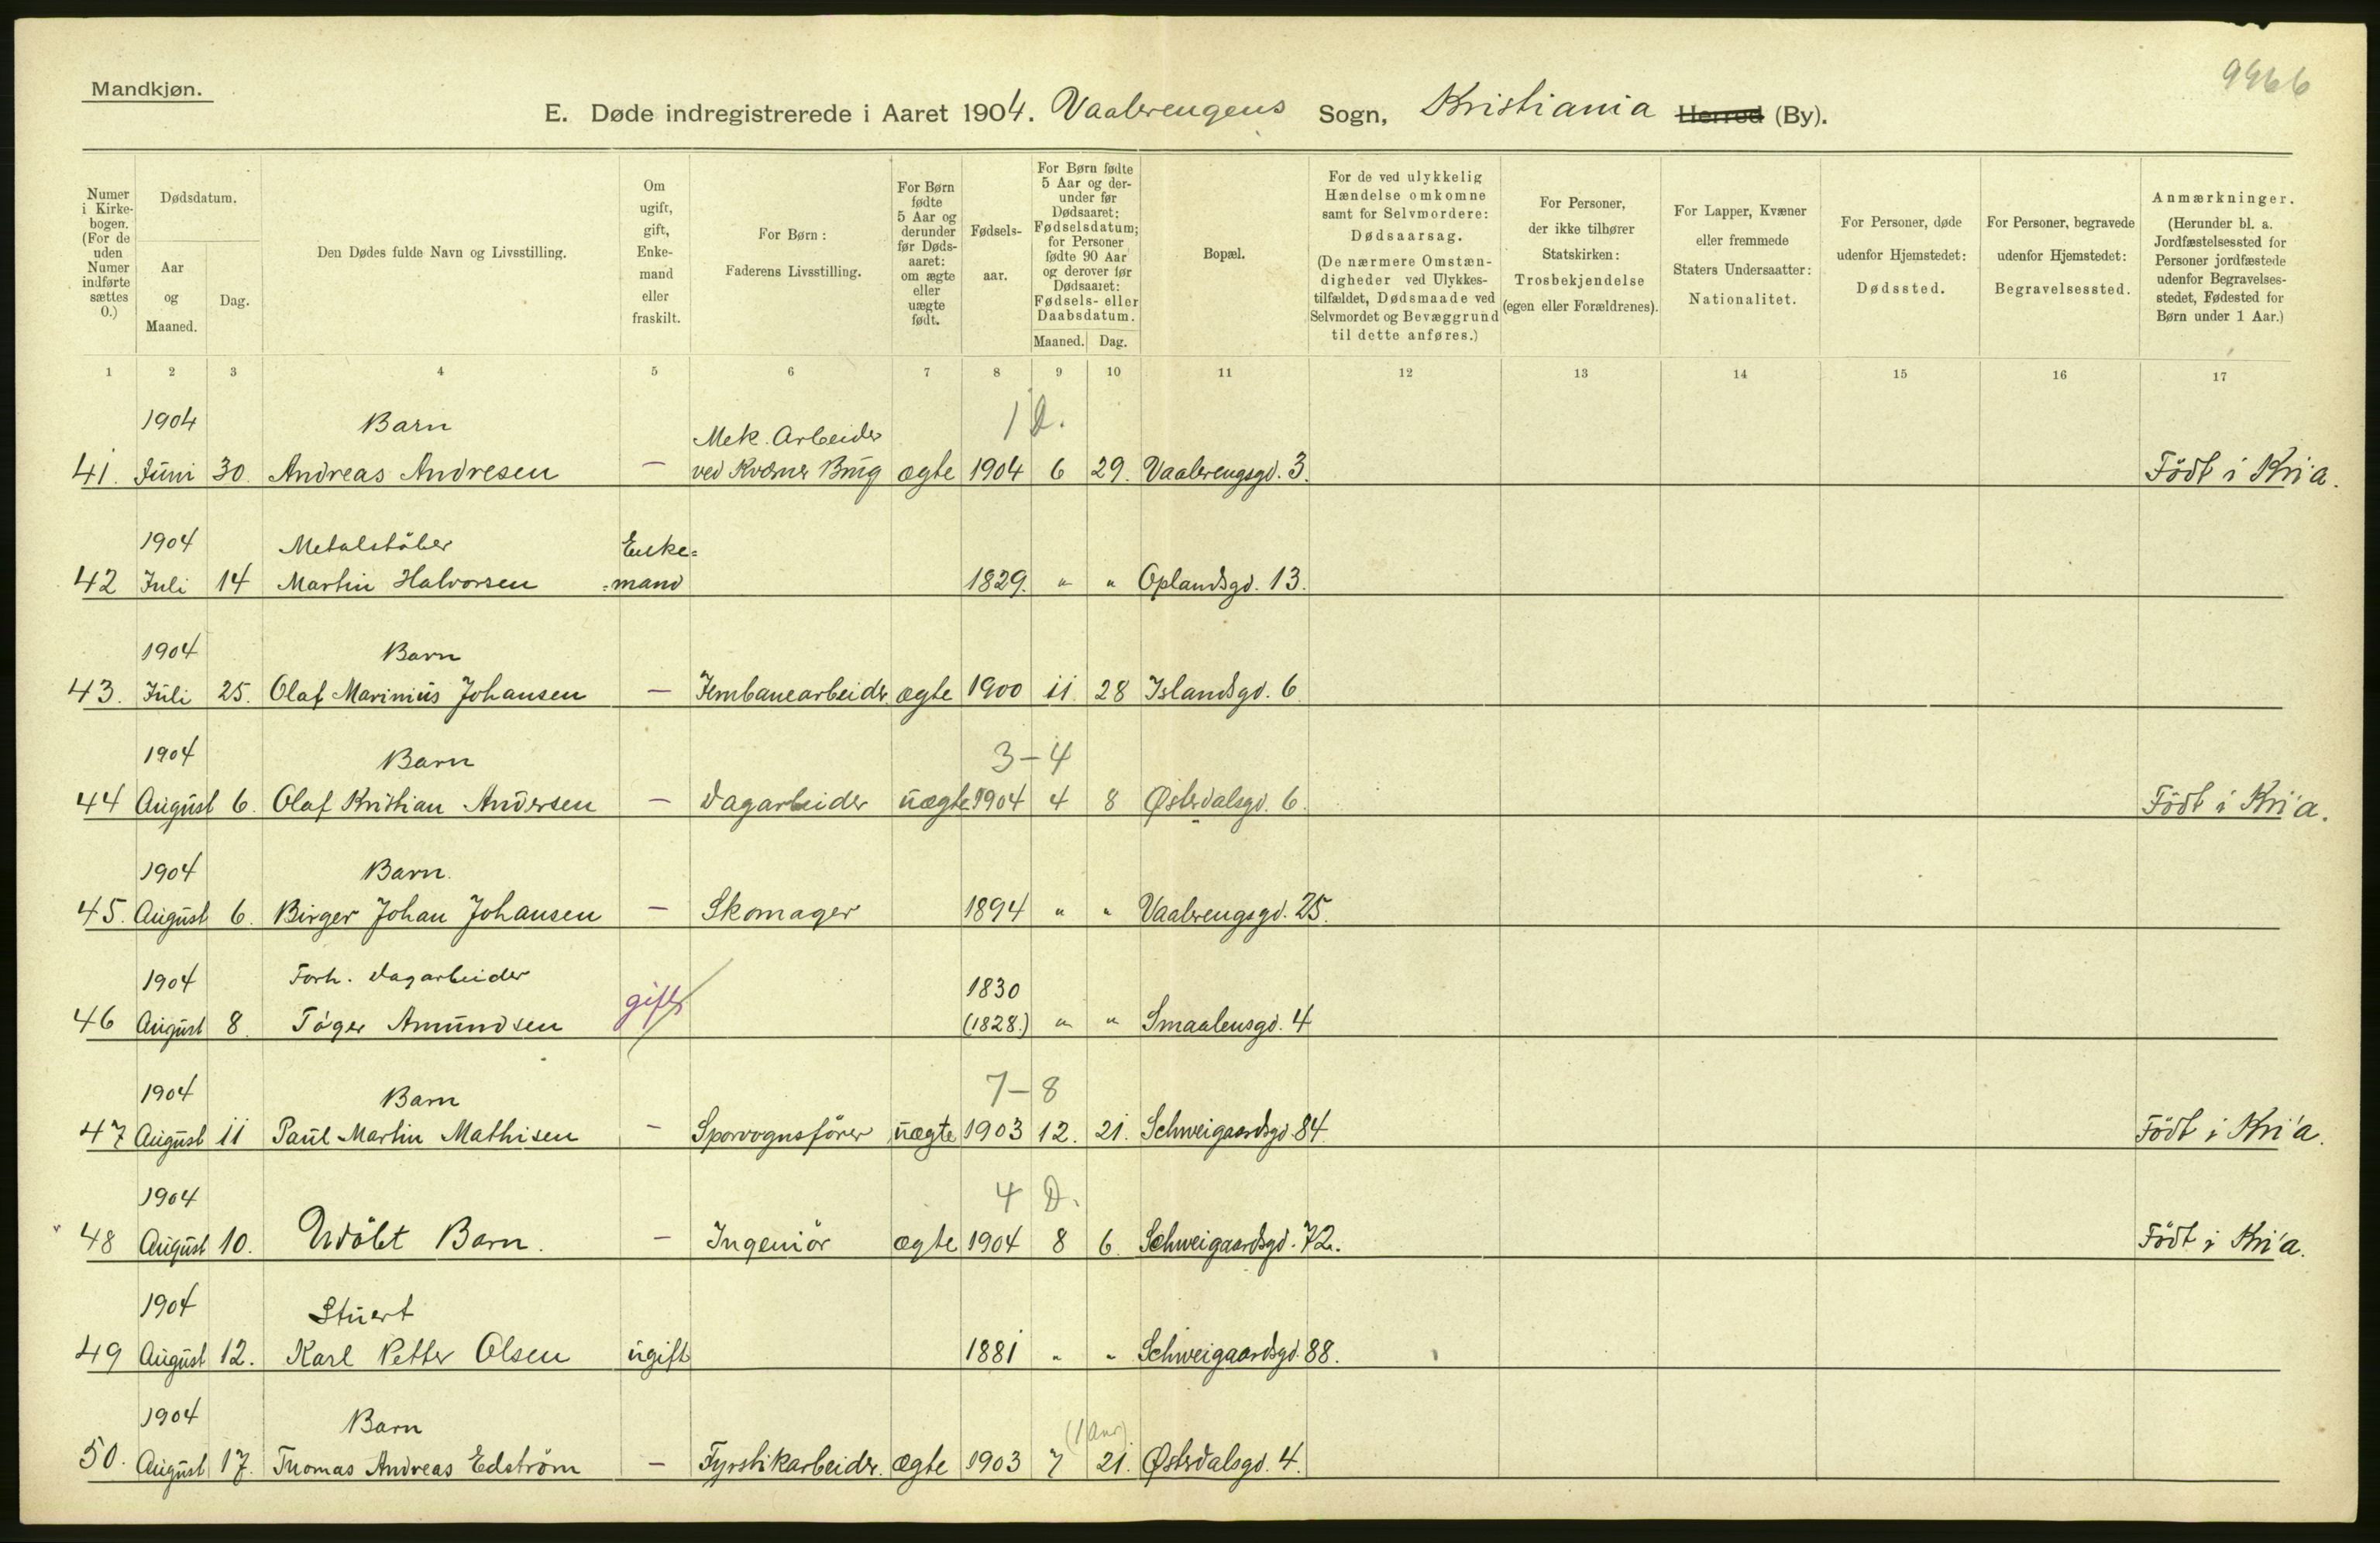 Mandkjøn.
9966
E. Døde indregistrerede i Aaret 1904. Vaalerengens Sogn, Kristiania Herred (By).
Numer i Kirkebogen. (For de uden Numer indførte sættes 0.)
Dødsdatum.
Aar og Maaned.
Dag.
Den Dødes fulde Navn og Livsstilling.
Om ugift, gift, Enkemand eller fraskilt.
For Børn: Faderens Livsstilling.
For Børn fødte 5 Aar og derunder før Dødsaaret: om ægte eller uægte født.
Fødselsaar.
For Børn fødte 5 Aar og derunder før Dødsaaret: Fødselsdatum; for Personer fødte 90 Aar og derover før Dødsaaret: Fødsels- eller Daabsdatum.
Maaned. Dag.
Bopæl.
For de ved ulykkelig Hændelse omkomne samt for Selvmordere: Dødsaarsag. (De nærmere Omstændigheder ved Ulykkestilfældet, Dødsmaade ved Selvmordet og Bevæggrund til dette anføres.)
For Personer, der ikke tilhører Statskirken: Trosbekjendelse (egen eller Forældrenes).
For Lapper, Kvæner eller fremmede Staters Undersaatter: Nationalitet.
For Personer, døde udenfor Hjemstedet: Dødssted.
For Personer, begravede udenfor Hjemstedet: Begravelsessted.
Anmærkninger. (Herunder bl. a. Jordfæstelsessted for Personer jordfæstede udenfor Begravelsesstedet, Fødested for Børn under 1 Aar.)
1 2 3 4 5 6 7 8 9 10 11 12 13 14 15 16 17
1904 Barn Mek. Arbeider 1 D.
41. Juni 30. Andreas Andresen — ved Kværner Brug ægte 1904 6 29. Vaalerengsgd. 3. Födt i Kri'a.
1904 Metalstöber Enke=
42 Juli 14 Martin Halvorsen =mand 1829. " " Oplandsgd. 13.
1904 Barn
43. Juli 25. Olaf Marinius Johansen — Jernbanearbeider. ægte 1900 11. 28 Islandsgd. 6
1904 Barn 3-4
44 August 6. Olaf Kristian Andersen — Dagarbeider uægte 1904 4 8 Østerdalsgd. 6. Födt i Kri'a.
1904 Barn.
45. August 6. Birger Johan Johansen — Skomager 1894 " " Vaalerengsgd. 25.
1904 Forh. Dagarbeider 1830
46 August 8. Töger Amundsen gift (1828.) " " Smaalensgd. 4
1904 Barn 7-8
47 August 11 Paul Martin Mathisen — Sporvognsförer uægte 1903 12. 21. Schweigaardsgd. 84 Födt i Kri'a.
1904 4 D.
48 August 10. Udöbt Barn. — Ingeniör ægte 1904 8 6. Schweigaardsgd. 72. Födt i Kri'a.
1904 Stuert
49 August 12. Karl Petter Olsen ugift 1881 " " Schweigaardsgd. 88.
1904 Barn (1 Aar)
50. August 17. Thomas Andreas Edström — Fyrstikarbeider. ægte 1903 7 21. Østerdalsgd. 4.